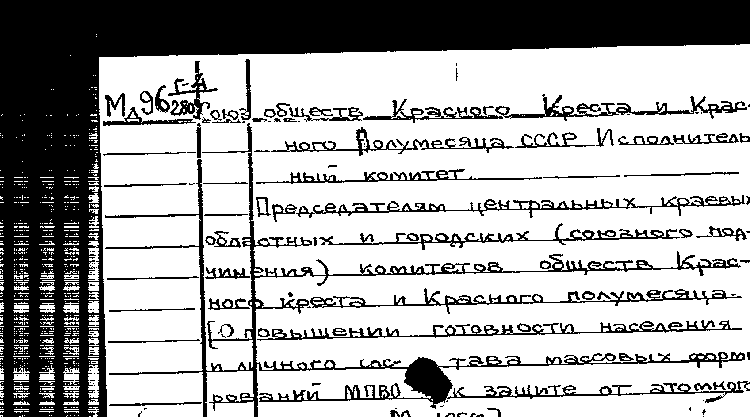 Г-4
Мд96 280
Союз обществ Красного Креста и Крас-
ного Полумесяца СССР Исполнитель
ный комитет.
Председателям центральных, краевых
областных и городских (союзного под-
чинения) комитетов обществ Крас-
ного креста и Красного полумесяца.
[О повышении готовности населения
и личного сос- тава массовых форми
рований МПВО к защите от атомного
М